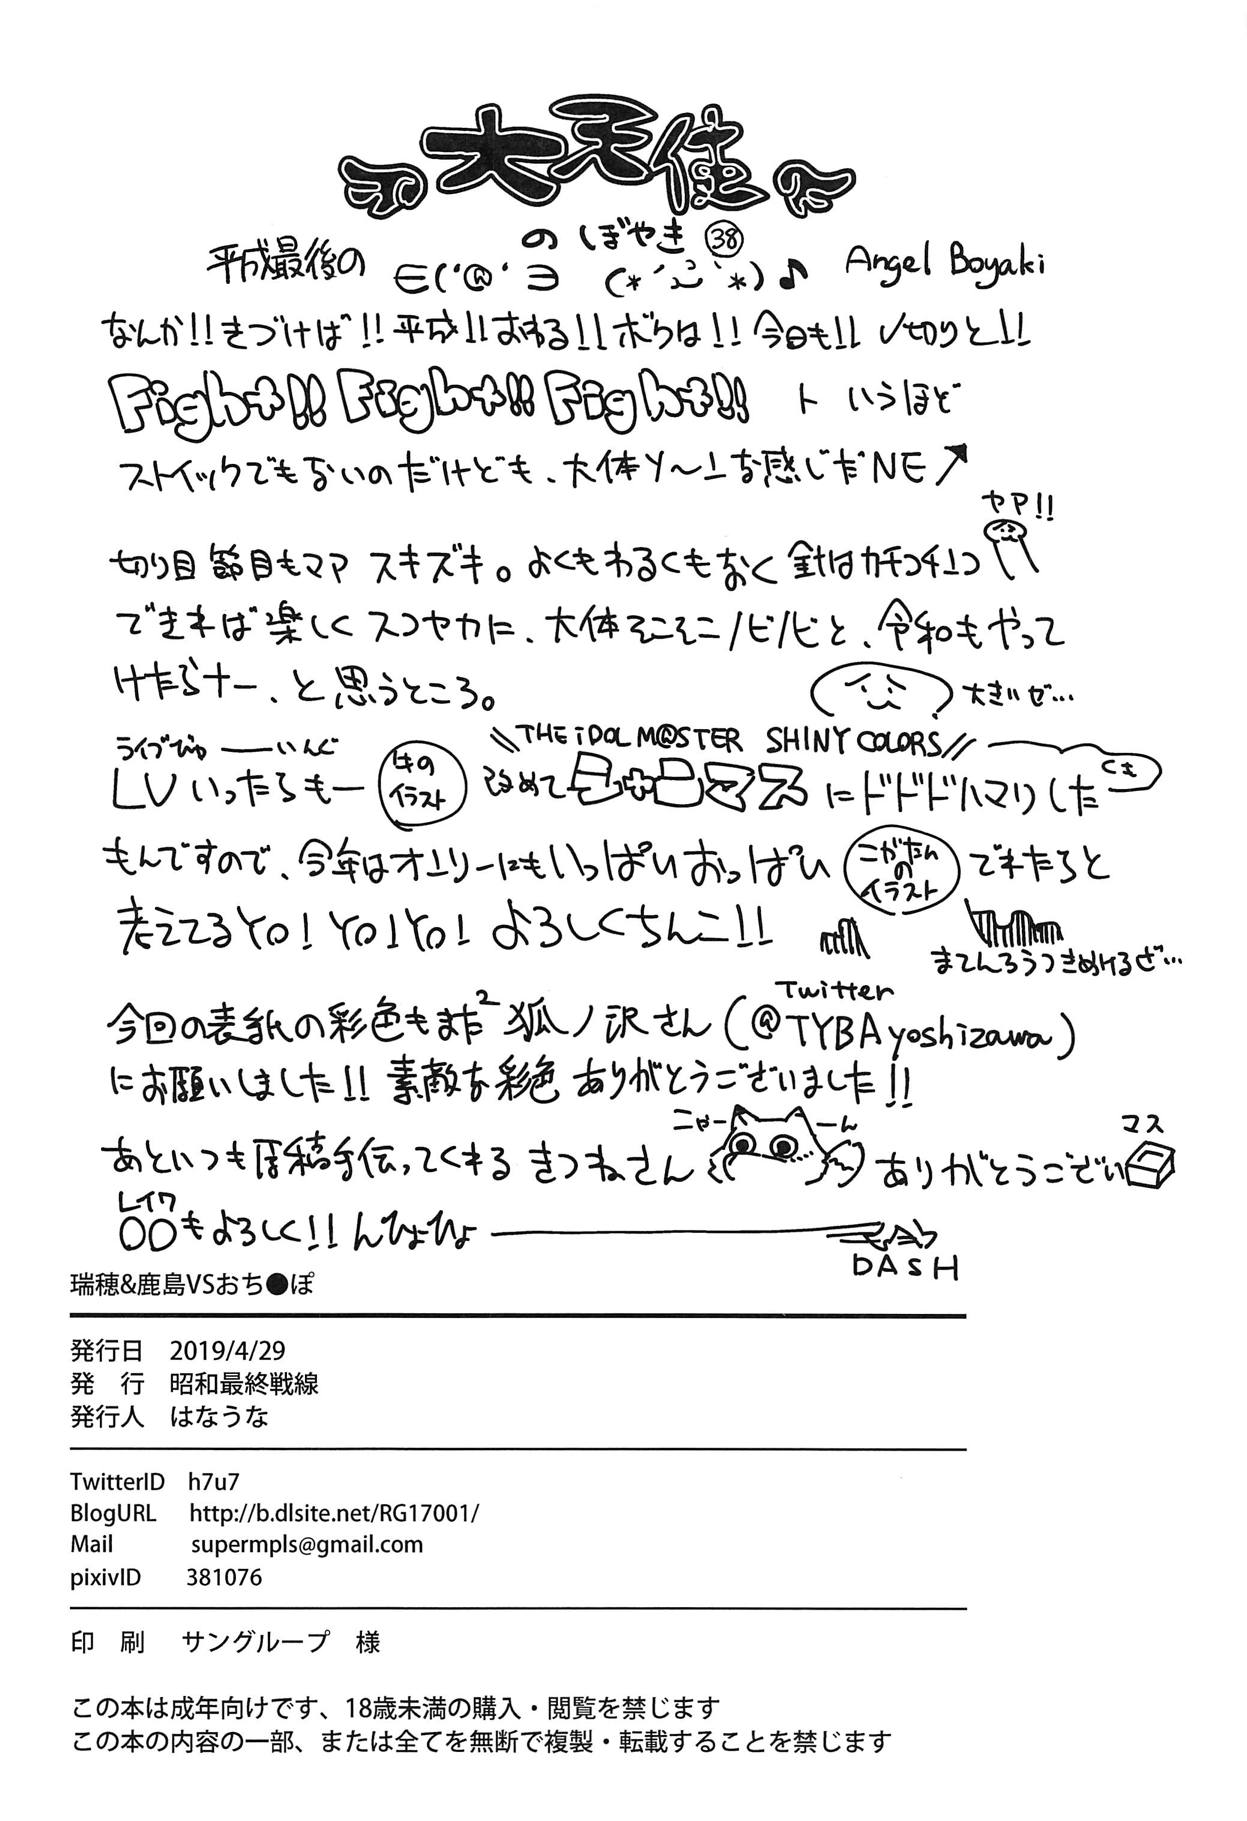 大天使
のぼやき㊳
平成最後の ∈('@'∋ (*´ `*)♪ Angel Boyaki
なんか!!きづけば!!平成!!おわる!!ボクは!!今日も!!〆切りと!!
Fight!! Fight!! Fight!! ト いうほど
ストイックでもないのだけども、大体ソ〜ユな感じだNE↗
ヤア!!
切り目 節目もママ スキズキ。よくもわるくもなく 針はカチコチユコ
できれば楽しくスコヤカに、大体そこそこノビノビと、令和もやって
けたらナー、と思うところ。
大きいぜ…
ライブびゅーーいんぐ \\THE iDOLM@STER SHINY COLORS//
LVいったらもー 件のイラスト 改めてシャニマスにドドドハマりした
くき
もんですので、今年はオンリーにもいっぱいおっぱい こがたんのイラスト でれたらと
考えてるYO!YO!YO!よろしくちんこ!!
まてんろうつきぬけるぜ…
Twitter
今回の表紙の彩色もまた² 狐ノ沢さん(@TYBAyoshizawa)
にお願いしました!!素敵な彩色ありがとうございました!!
にゃーーん マス
あといつも原稿手伝ってくれる きつねさん ありがとうござい
レイワ
〇〇もよろしく!!んひょひょ
DASH
瑞穂&鹿島VSおち●ぽ
発行日 2019/4/29
発 行 昭和最終戦線
発行人 はなうな
TwitterID h7u7
BlogURL http://b.dlsite.net/RG17001/
Mail supermpls@gmail.com
pixivID 381076
印 刷 サングループ 様
この本は成年向けです、18歳未満の購入・閲覧を禁じます
この本の内容の一部、または全てを無断で複製・転載することを禁じます